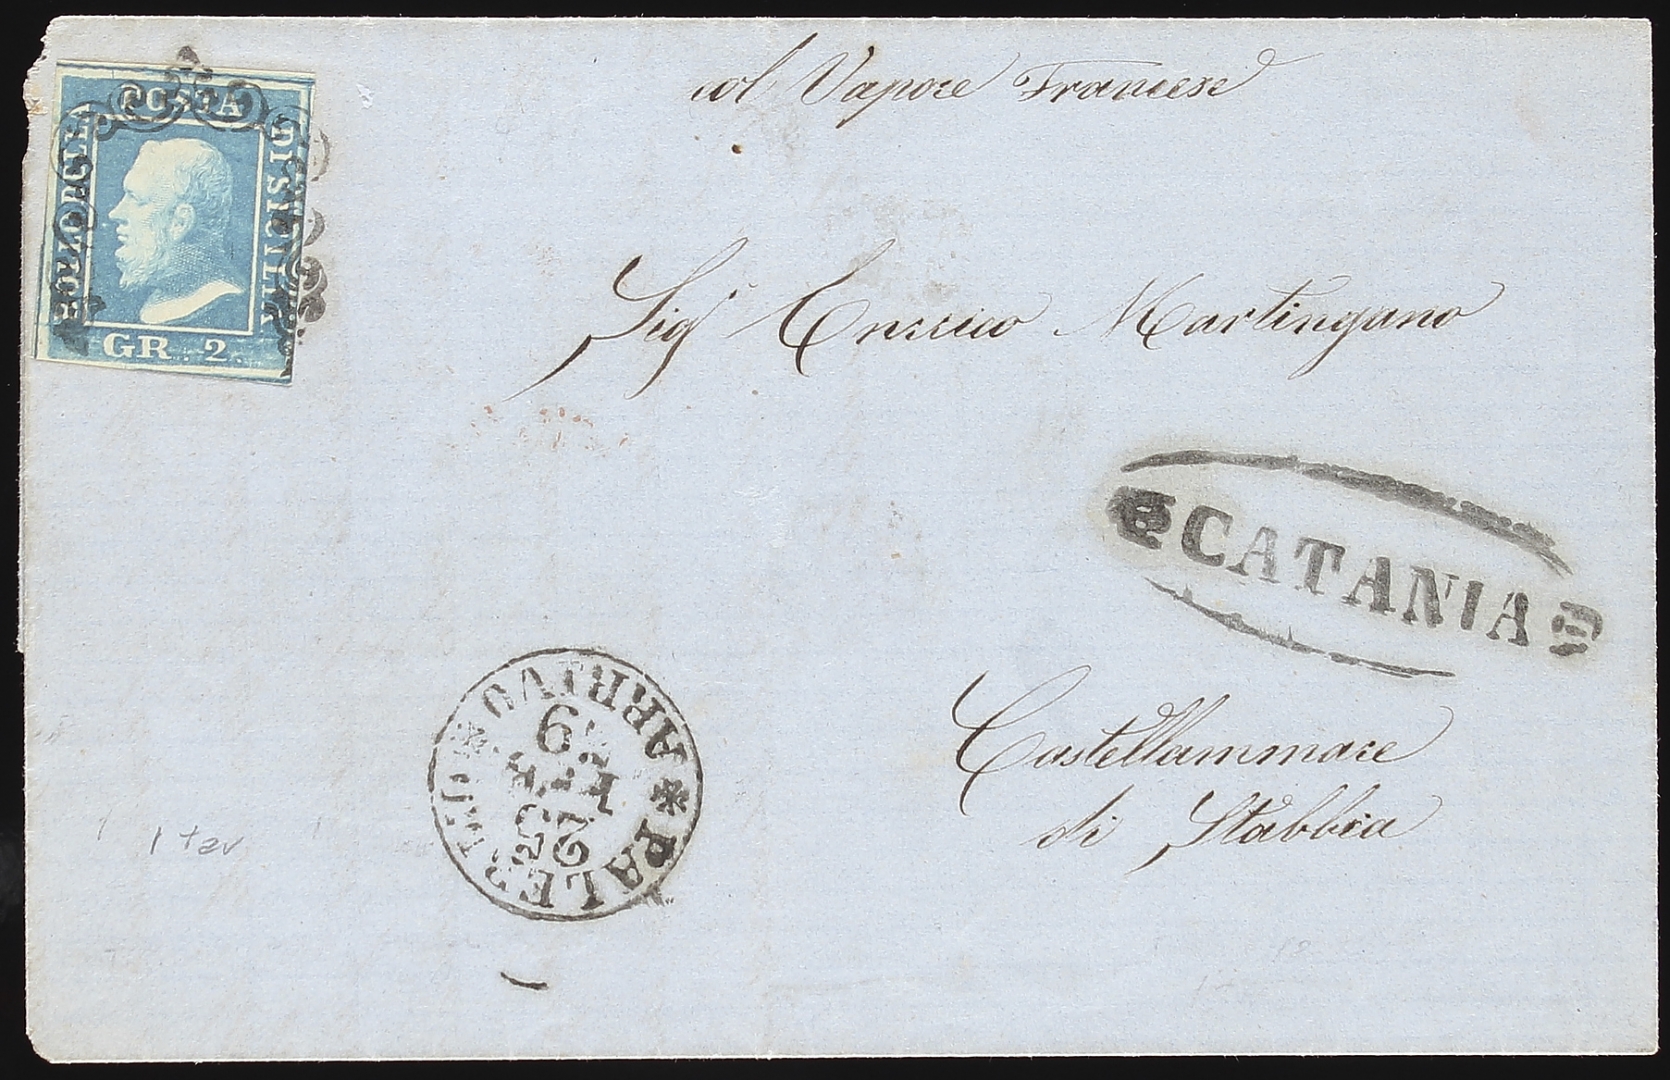 col Vapore Francese
POSTA
BOLLO DELLA
DI SICILIA
GR. 2.
Sigr Enrico Martingano
CATANIA
Castellammare
di Stabbia
ARRIVO
PALERMO
FEB
1 tav